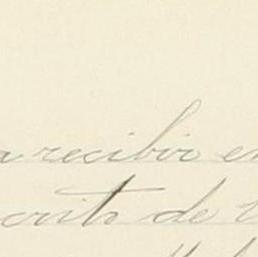 a recibir en
crito de